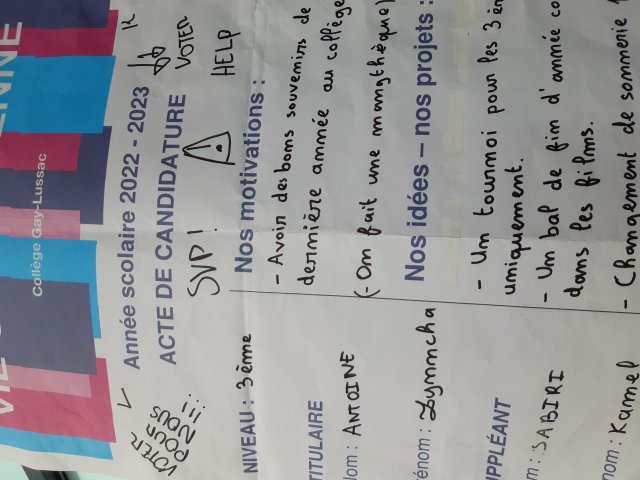 Collège Gay-Lussac
Année scolaire 2022 - 2023
ACTE DE CANDIDATURE
VOTER
HELP
SVP!
VOTER
POUR
NOUS
!!!
NIVEAU : 3ème
TITULAIRE
om : ANTOINE
rénom : Lynmcha
PPLÉANT
m : SABIRI
nom : Kamel
Nos motivations :
- Avoir des bons souvenirs de
dernière année au collège
(- On fait une mangathèque)
Nos idées – nos projets :
- Un tournoi pour les 3 èm
uniquement.
- Un bal de fin d'année co
dans les films.
- Changement de sonnerie